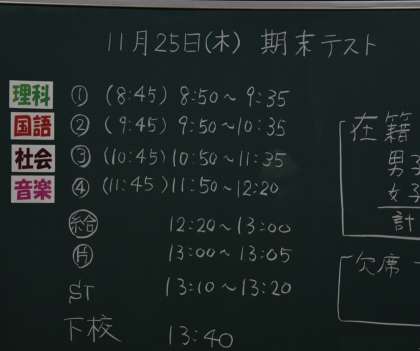 11月25日(木) 期末テスト
理科 ① (8:45) 8:50〜9:35
国語 ② (9:45) 9:50〜10:35
社会 ③ (10:45) 10:50〜11:35
音楽 ④ (11:45) 11:50〜12:20
給 12:20〜13:00
片 13:00〜13:05
ST 13:10〜13:20
下校 13:40
在籍
男子
女子
計
欠席